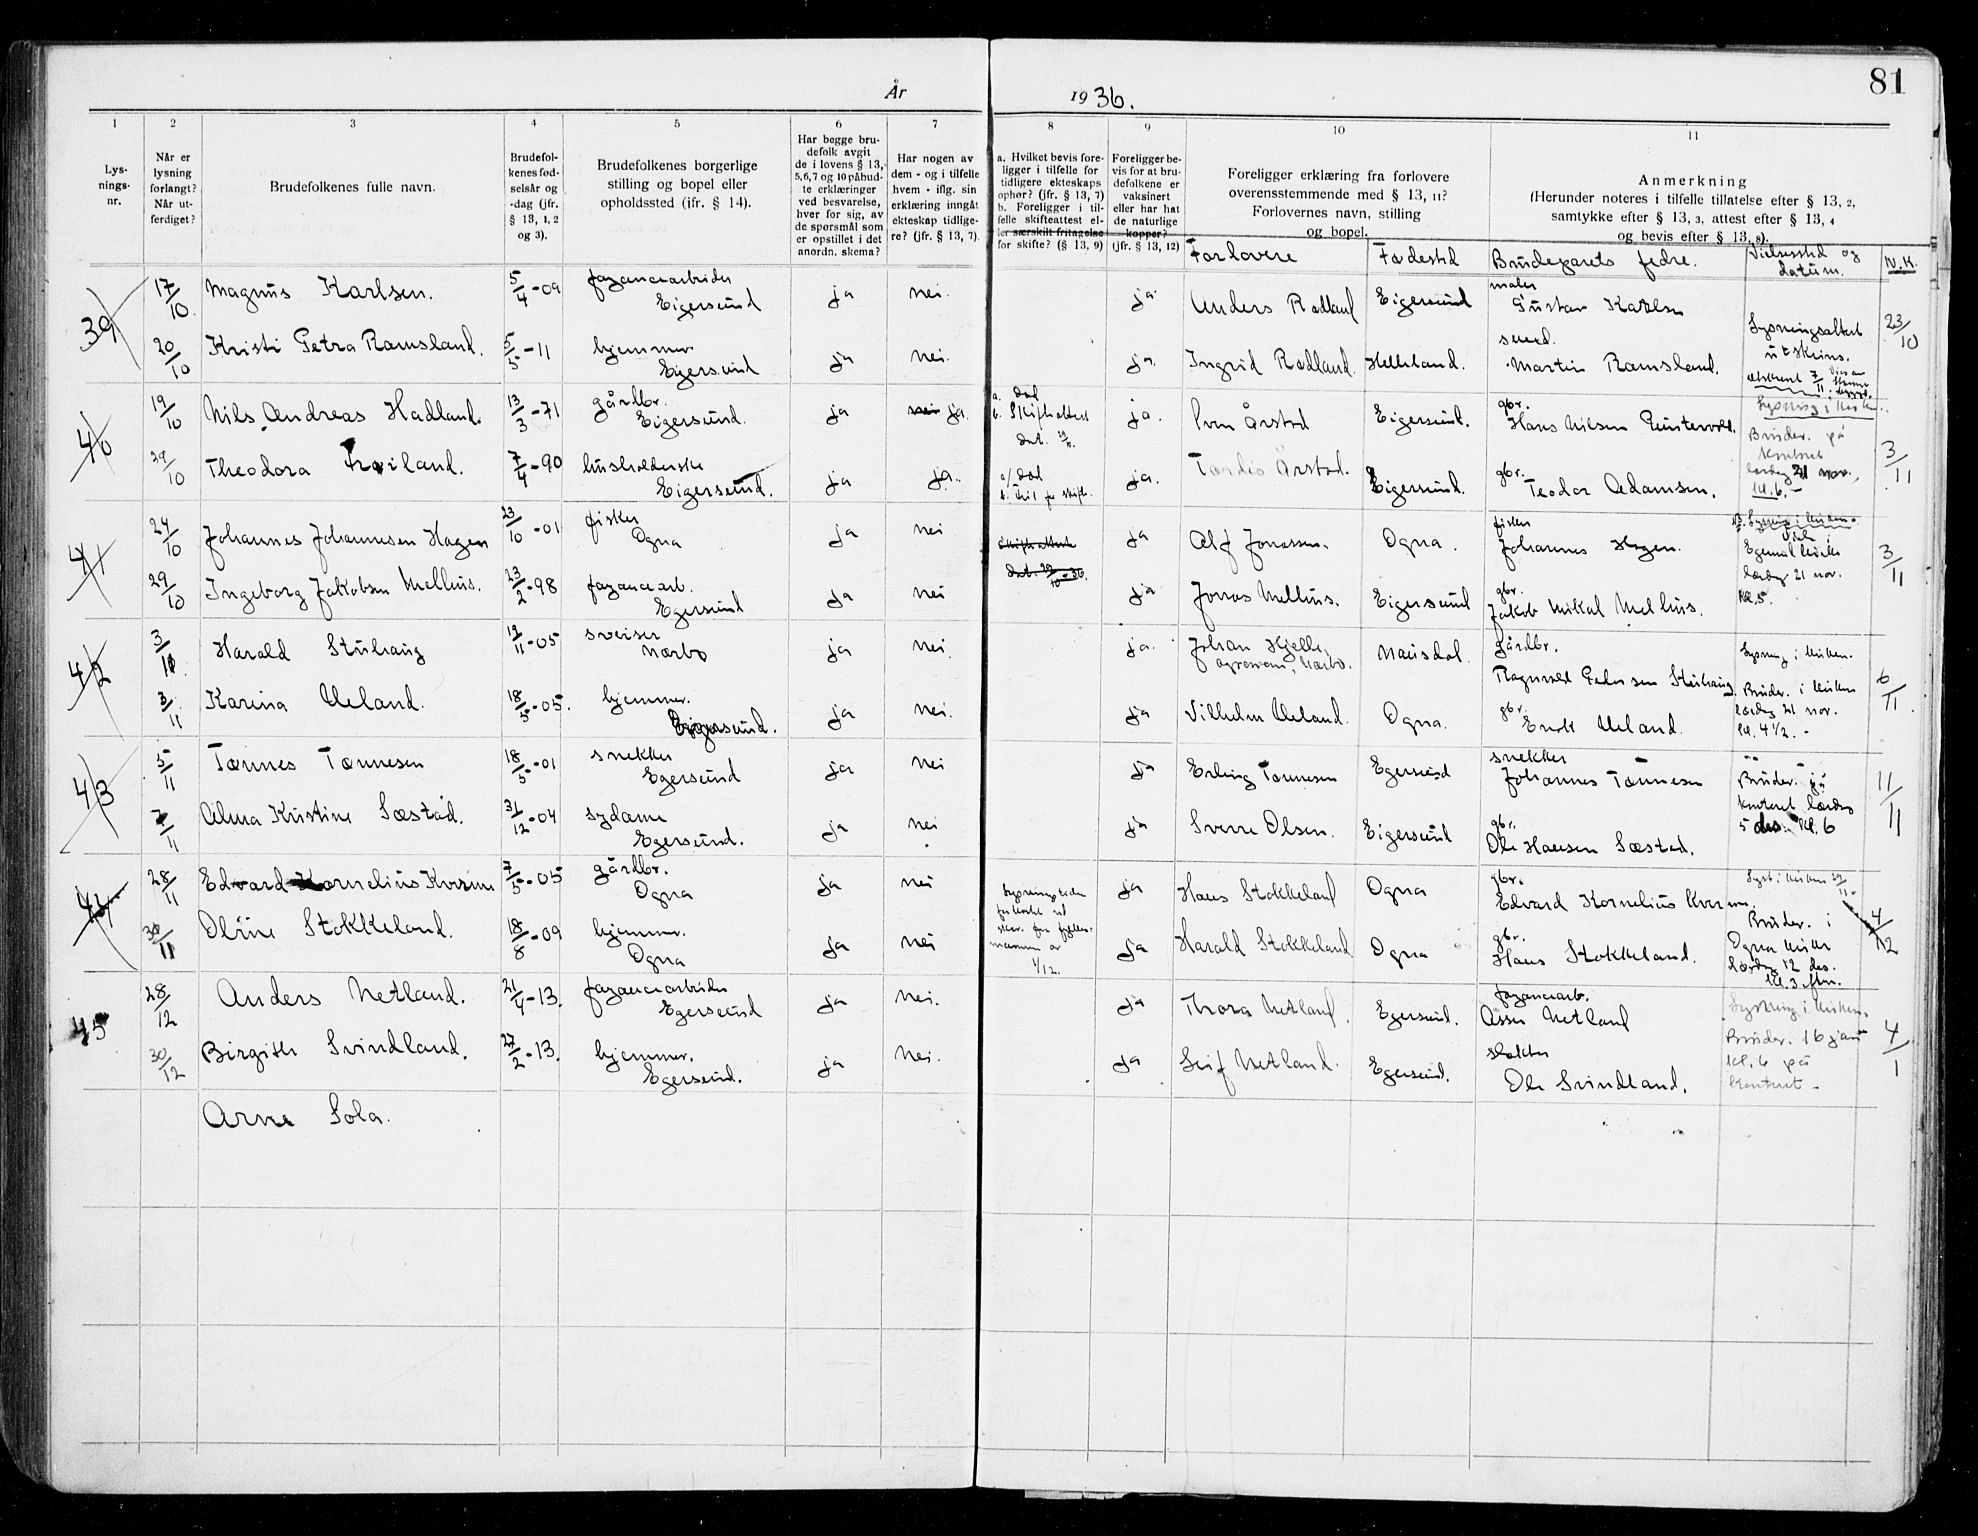 81
År 1936.
1 2 3 4 5 6 7 8 9 10 11
Lys-
nings-
nr.
Når er
lysning
forlangt?
Når ut-
ferdiget?
Brudefolkenes fulle navn.
Brudefol-
kenes fød-
selsår og
-dag (jfr.
§ 13, 1, 2
og 3).
Brudefolkenes borgerlige
stilling og bopel eller
opholdssted (ifr. § 14).
Har begge bru-
defolk avgit
de i lovens § 13,
5,6,7 og 10 påbud-
te erklæringer
ved besvarelse,
hver for sig, av
de spørsmål som
er opstillet i det
anordn. skema?
Har nogen av
dem - og i tilfelle
hvem - iflg. sin
erklæring inngåt
ekteskap tidlige-
re? (jfr. § 13, 7).
a. Hvilket bevis fore-
ligger i tilfelle for
tidligere ekteskaps
ophør? (jfr. § 13, 7)
b. Foreligger i til-
felle skifteattest el-
ler særskilt fritagelse
for skifte? (§ 13, 9)
Foreligger be-
vis for at bru-
defolkene er
vaksinert
eller har hat
de naturlige
kopper?
(jfr. § 13, 12)
Foreligger erklæring fra forlovere
overensstemmende med § 13, 11?
Forlovernes navn, stilling
og bopel.
Anmerkning
(Herunder noteres i tilfelle tillatelse efter § 13, 2,
samtykke efter § 13, 3, attest efter § 13, 4
og bevis efter § 13, 8).
Forlovere Fødested Brudeparets fedre. Vielsessted og datum. N.K.
39 17/10 Magnus Karlsen. 5/4-09 fayancearbeider Eigersund ja nei. ja Anders Rødland Eigersund maler Gustav Karlsen 23/10
20/10 Kristi Petra Ramsland. 5/5-11 hjemmev. Eigersund ja nei. ja. Ingrid Rødland Helleland. Martin Ramsland. Lysningsattest utskrevs.
40 19/10 Nils Andreas Hadland. 13/3-71 gårdbr. Eigersund. ja nei ja. a. død b. Skifteattest dat. ja. Årstad Eigersund. gbr. Hans Nilsen Lysning i kirken.
29/10 Theodora Frøiland. 7/4-90 husholderske Eigersund. ja ja. a/ død ja. Tordis Årstad. Eigersund. gbr. Teodor Adamsen. Bruder. på kontoret lørdag 21 nov. kl. 6. - 3/11
41 24/10 Johannes Johannesen Hagen 23/10-01 fisker Ogna ja nei skifteattest dat. 29/10-36. ja Alf Jonassen. Ogna. fisker Johannes Hagen. 3/11
29/10 Ingeborg Jakobsen Mellius. 23/2-98 fayancearb. Egersund ja nei ja Jonas Mellius. Eigersund gbr. Jakob Mikal Mellius. lørdag 21 nov. kl. 5.
42 3/11 Harald Stuhaug 19/11-05 sveiser Nærbø ja nei. ja. Johan Hjelle, Nærbø. Mausdal. gårdbr. Ragnvald Pedersen Stuhaug Lysning i kirken. 6/11
3/11 Karina Ueland. 18/5-05. hjemmev. Eigersund. ja nei. ja Vilhelm Ueland. Ogna. gbr. Enok Ueland. Bruder. i kirken lørdag 21 nov. kl. 4½. -
43 5/11 Tønnes Tønnesen 18/5-01 snekker Egersund ja nei ja Erling Tønnesen Egersund snekker Johannes Tønnesen 11/11
7/11 Alma Kristine Sæstad. 31/12-04 sydame Egersund. ja nei ja Sverre Olsen. Eigersund gbr. Ole Hansen Sæstad. Bruder. på kontoret lørdag 5 des. kl. 6
44 28/11 Edvard Kornelius Kverme 7/5-05 gårdbr. Ogna ja nei ja Hans Stokkeland Ogna gbr. Edvard Kornelius Lyst. i kirken 29/11. 4/12
30/11 Oline Stokkeland. 18/8-09 hjemmev. Ogna ja nei lysningstiden forkortet ved av 1/12. ja Harald Stokkeland Ogna gbr. Hans Stokkeland. Bruder. i Ogna kirke Lørdag 12 des. kl. 3 eftm.
45 28/12 Anders Netland. 21/4-13. fayancearbeider Egersund ja nei. ja Thora Netland. Egersund. fayancearb. Asser Netland Lysning i kirken. 4/1
30/12 Birgith Svindland. 27/2-13. hjemmev. Egersund. ja nei. ja Leif Netland. Egersund. slakter Ole Svindland. Bruder. 16 jan kl. 6 på kontoret -
Arne Sola.